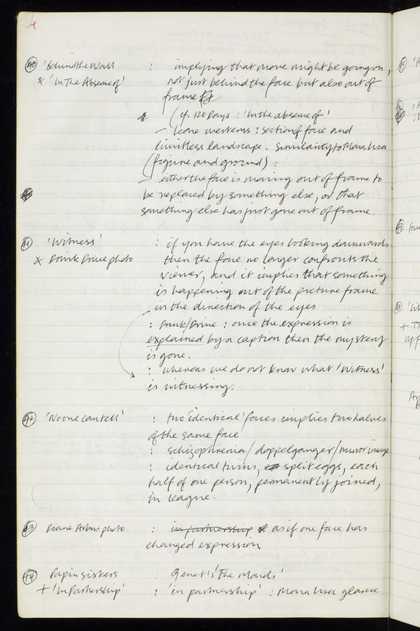 'Behind the Wall' : implying that more might be going on,
x 'In The Absence of' not just behind the face but also out of
frame
(cf. 120 Days : 'In the absence of'
– Leone westerns : section of face and
limitless landscape. Similarity to Mona Lisa
(figure and ground) :
– either the face is moving out of frame to
be replaced by something else, or that
something else has just gone out of frame.
'Witness' : if you have the eyes looking downwards
x Drunk Drive photo then the face no longer confronts the
viewer, and it implies that something
is happening out of the picture frame
in the direction of the eyes
: Drunk/Drive : once the expression is
explained by a caption then the mystery
is gone.
: whereas we do not know what 'Witness'
is witnessing.
'No one can tell' : two identical faces implies two halves
of the same face
: schizophrenia / doppelganger / mirror image
: identical twins, split eggs, each
half of one person, permanently joined,
in league.
Diane Arbus photo : in partnership as if one face has
changed expression
Papin sisters : Genet's 'The Maids'
+ 'In Partnership' : 'in partnership' : Mona Lisa glance